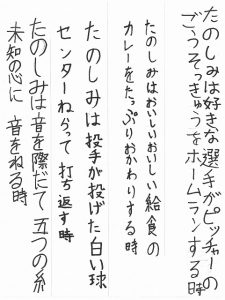 たのしみは好きな選手がピッチャーの
ごうそっきゅうをホームランする時
たのしみはおいしいおいしい給食の
カレーをたっぷりおかわりする時
たのしみは投手が投げた白い球
センターねらって打ち返す時
たのしみは音を際だて五つの糸
未知の心に音をねる時